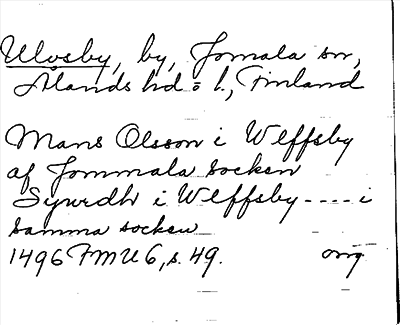 Ulvsby, by, Jomala sn,
Ålands hd o l., Finland
Mans Olsson i Wlffsby
af Jommala socken
Sywrdh i Wlffsby ---- i
samma socken
1496 FMU 6, s. 49. orig